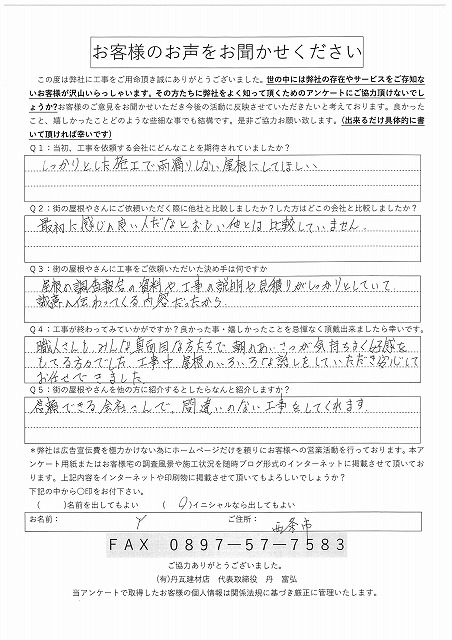 お客様のお声をお聞かせください
この度は弊社に工事をご用命頂き誠にありがとうございました。世の中には弊社の存在やサービスをご存知ない
お客様が沢山いらっしゃいます。その方たちに弊社をよく知って頂くためのアンケートにご協力頂けないでし
ょうか?お客様のご意見をお聞かせいただき今後の活動に反映させていただきたいと考えております。良かった
こと、嬉しかったことどのような些細な事でも結構です。是非ご協力お願い致します。(出来るだけ具体的に書
いて頂ければ幸いです)
Q1:当初、工事を依頼する会社にどんなことを期待されていましたか?
しっかりとした施工で雨漏りしない屋根にしてほしい
Q2:街の屋根やさんにご依頼いただく際に他社と比較しましたか?した方はどこの会社と比較しましたか?
最初に感じの良い人だなとおもい他とは比較していません。
Q3:街の屋根やさんに工事をご依頼いただいた決め手は何ですか
屋根の調査報告の資料や工事の説明や見積りがしっかりとしていて
誠意の伝わってくる内容だったから。
Q4:工事が終わってみていかがですか?良かった事・嬉しかったことを忌憚なく頂戴出来ましたら幸いです。
職人さんもみんな真面目な方たちで朝のあいさつが気持ちよく好感を
もてる方々でした。工事中屋根のいろいろな話しをしていただき安心して
お任せできました
Q5:街の屋根やさんを他の方に紹介するとしたらなんと紹介しますか?
信頼できる会社さんで、間違いのない工事をしてくれます
*弊社は広告宣伝費を極力かけない為にホームページだけを頼りにお客様への営業活動を行っております。本ア
ンケート用紙またはお客様宅の調査風景や施工状況を随時ブログ形式のインターネットに掲載させて頂いてお
ります。上記内容をインターネットや印刷物に掲載させて頂いてもよろしいでしょうか?
下記の中から〇印をお付下さい。
( )名前を出してもよい ( ○ )イニシャルなら出してもよい
お名前: Y ご住所: 西条市
FAX 0897-57-7583
ご協力ありがとうございました。
(有)丹瓦建材店 代表取締役 丹 富弘
当アンケートで取得したお客様の個人情報は関係法規に基づき厳正に管理いたします。